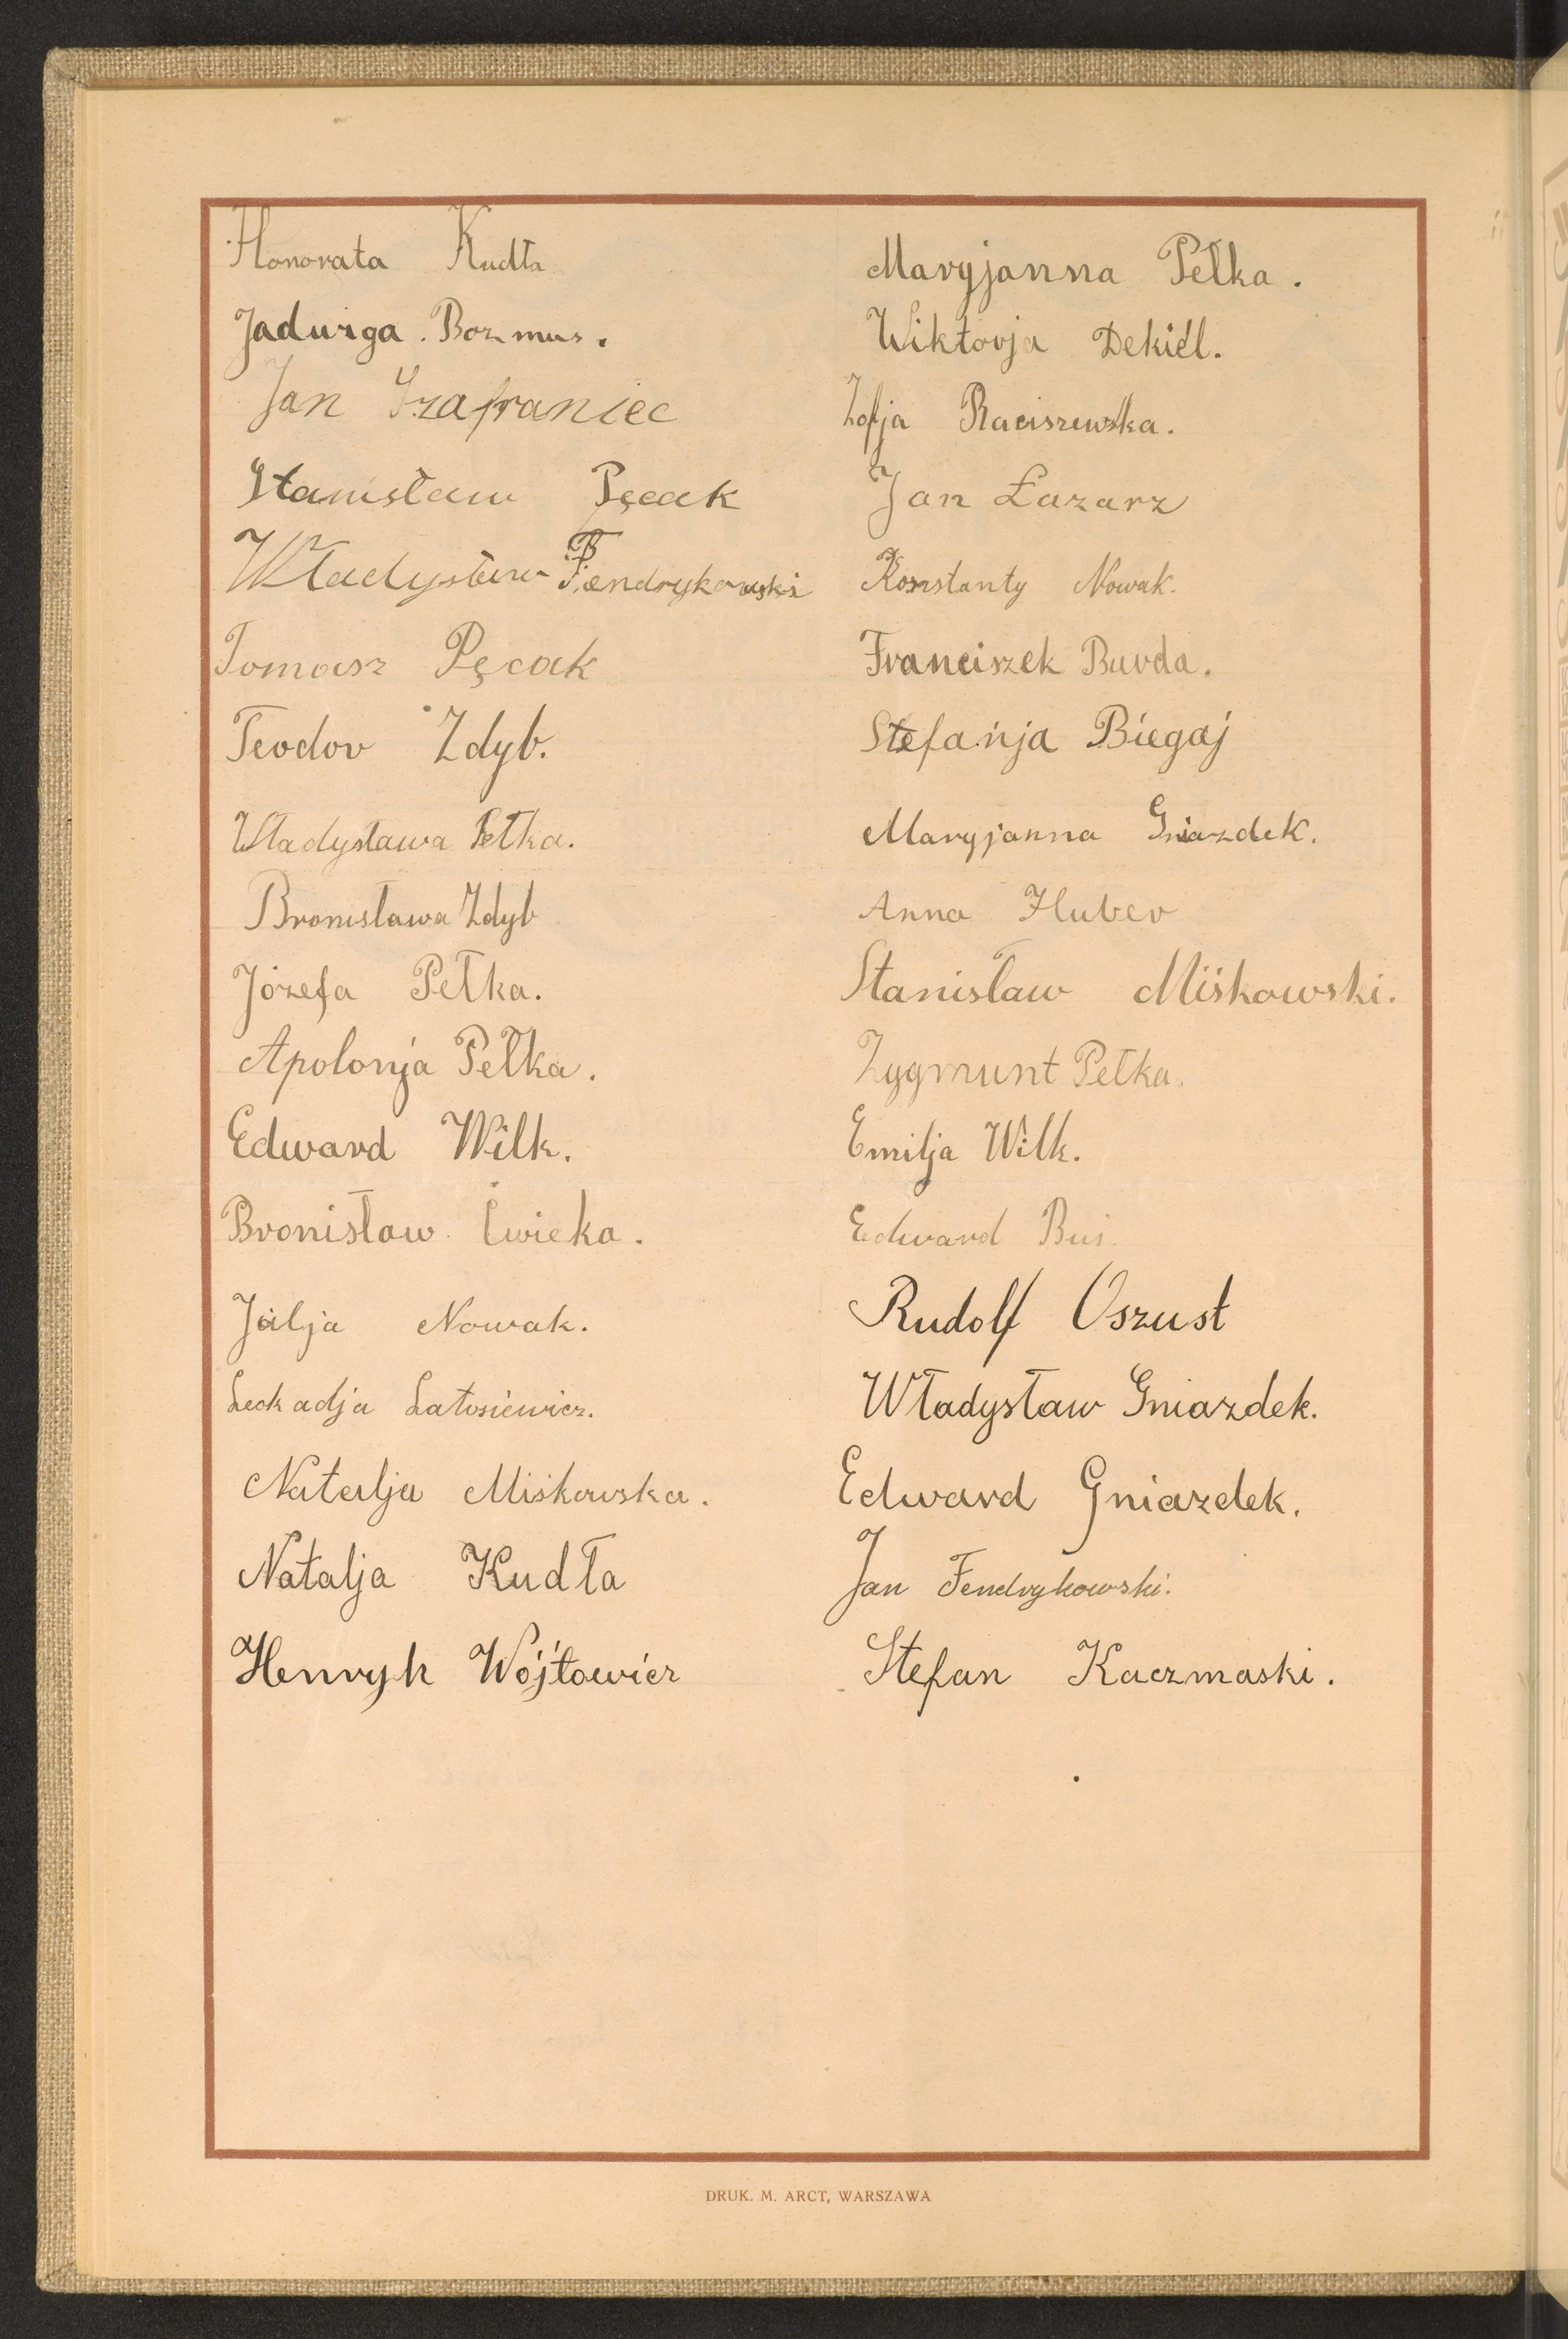 Honorata Kudła
Jadwiga Bozmus.
Jan Szafraniec
Stanisław Pęcak
Władysław Fendrykowski
Tomasz Pęcak
Teodor Zdyb.
Władysława Pełka.
Bronisława Zdyb
Józefa Pełka.
Apolonja Pełka.
Edward Wilk.
Bronisław Ćwieka.
Julja Nowak.
Leokadja Latosiewicz.
Natalja Miśkowska.
Natalja Kudła
Henryk Wójtowicz
Maryjanna Pełka.
Wiktorja Dekiel.
Zofja Raciszewska.
Jan Łazarz
Konstanty Nowak.
Franciszek Burda.
Stefanja Biegaj
Maryjanna Gniazdek.
Anna Huber
Stanisław Miśkowski.
Zygmunt Pełka.
Emilja Wilk.
Edward Buś.
Rudolf Oszust
Władysław Gniazdek.
Edward Gniazdek.
Jan Fendrykowski.
Stefan Kaczmaski.
DRUK. M. ARCT, WARSZAWA